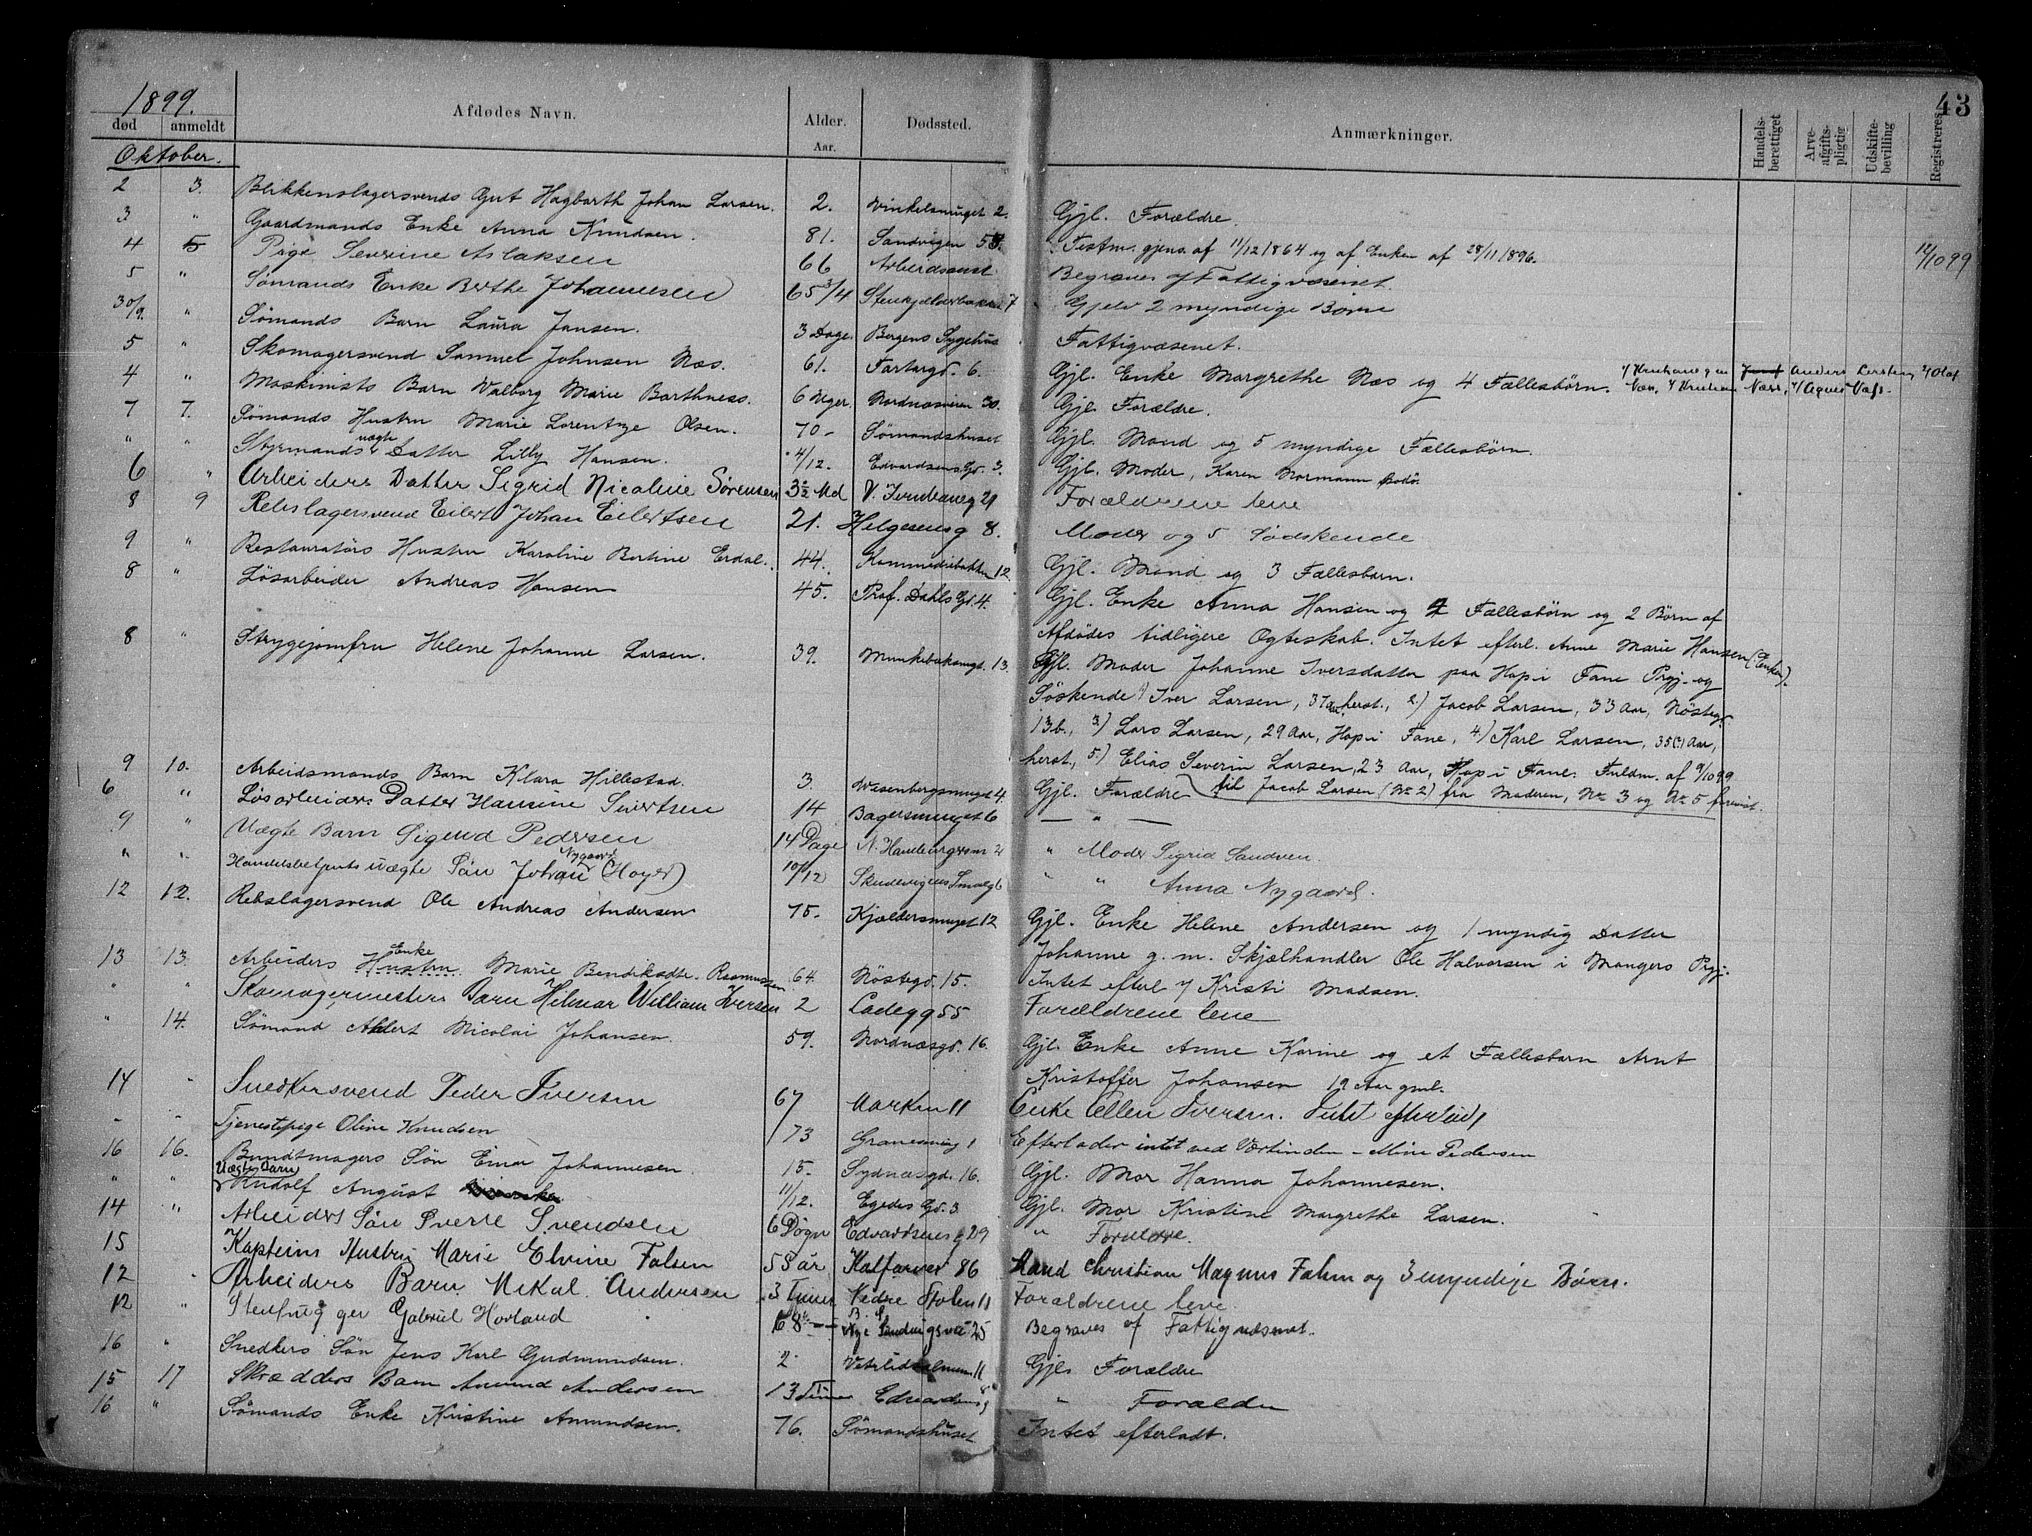 43
1899.
død anmeldt Afdødes Navn. Alder. Aar. Dødssted. Anmærkninger. Handelsberettiget Arveafgiftspligtig Udskiftebevilling Registreres
Oktober.
2 3. Blikkenslagersvends Gut Hagbarth Johan Larsen. 2. Vinkelsmuget 2. Gjl. Forældre.
3 " Gaardmands Enke Anna Knudsen. 81. Sandvigen 58. Testm. gjens. af 11/12 1864 og af Enken af 28/11 1896. 12/10 99
4 5 Pige Severine Aslaksen 66 Arbeidsanst Begraves af Fattigvæsenet.
5 " Sømands Enke Berthe Johannesen 65 3/4 Stenkjælderbakken 7 Gjelv 2 myndige Børn
30/9. " Sømands Barn Laura Jansen. 3 Dage. Bergens Sygehus Fattigvæsenet.
5 " Skomagersvend Samuel Johnsen Næs. 61. Fortargd. 6. Gjl. Enke Margrethe Næs og 4 Fællesbørn.
4 " Maskinists Barn Valborg Marie Barthness. 6 Uger. Nordnæsveien 30. Gjl. Forældre.
7 7. Sømands Hustru Marie Lorentze Olsen. 70 - Sømandshuset Gjl. Mand og 5 myndige Fællesbørn.
" " Styrmands uægte Datter Lilly Hansen. 4/12. Edvardsens Gd. 3. Gjl. Moder, Karen Normann Bodø.
6 " Arbeiders Datter Sigrid Nicoline Sørensen 3½ Md V. Torvbaneg 29 Forældrene leve
8 9 Rebslagersvend Eilert Johan Eilertsen 21. Helgesensg 8. Moder og 5 Sødskende
9 " Restauratørs Hustru Karoline Bertine Erdal. 44. Kommediebakken 12 Gjl. Mand og 3 Fællesbørn.
8 " Løsarbeider Andreas Hansen 45. Prof. Dahls Gd. 4. Gjl. Enke Anna Hansen og 4 Fællesbørn og 2 Børn af
Afdødes tidligere Ægteskab. Intet efterl. Anne Marie Hansen (Enke).
8 " Strygejomfru Helene Johanne Larsen. 39. Munkebaksmgt. 13. Gjl. Moder Johanne Iversdatter paa Hop i Fane Prgj. og
Søskende 1) Iver Larsen, 37 Aar, herst., 2) Jacob Larsen, 33 Aar, Nøstegd.
13 b., 3) Lars Larsen, 29 Aar, Hop i Fane, 4) Karl Larsen, 35(?) Aar,
herst, 5) Elias Severin Larsen, 23 Aar, Hop i Fane. Fuldm. af 9/10 99
9 10. Arbeidsmands Barn Klara Hillestad. 3. Wesenbergsmuget 4. Gjl. Forældre til Jacob Larsen (No 2) fra Moderen, No 3 og No 5 forevist.
6 " Løsarbeiders Datter Hansine Sivertsen 14 Bagersmuget 6 — " —
9 " Uægte Barn Sigurd Pedersen 14 Dage " Moder Sigrid Sandven
" " Handelsbetjents uægte Søn Johan Nygaard (Høyer) 10/12 Skudevigens Smalg 6 " " Anna Nygaard.
12 12. Rebslagersvend Ole Andreas Andersen 75. Kjældersmuget 12 Gjl. Enke Helene Andersen og 1 myndig Datter
Johanne g. m. Skjælhandler Ole Halvorsen i Mangers Prgj.
13 13. Arbeiders Enke Hustru Marie Bendiksdtr. Rasmussen 64. Nøstegd. 15. Intet efterl y Kristi Madsen.
" " Skomagermesters Barn Hilmar William Iversen 2 Ladegg 55 Forældrene leve
" 14. Sømand Albert Nicolai Johansen. 59. Nordnæsgd. 16. Gjl. Enke Anne Karine og et Fællesbarn Arnt
Kristoffer Johansen 19 Aar gml.
14 " Snedkersvend Peder Iversen 67 Marken 11 Enke Ellen Iversen. Intet efterladt
" " Tjenestepige Oline Knudsen 73 Efterlader intet ved Værtinden - Mine Pedersen
16 16. Bundtmagers Søn Einar Johannesen. 15. Sydnæsgd. 16. Gjl. Mor Hanna Johannesen.
" " Uægte Barn Rudolf August 11/12. Egedes Gd. 3 Gjl. Mor Kristine Margrethe Larsen.
14 " Arbeiders Søn Sverre Svendsen 6 Døgn Edvardsens g 29 " Forældre.
15 Kapteins Hustru Marie Elvine Falsen 58 år Kalfarvei 86 Mand Christian Magnus Falsen og 3 myndige Børn.
12 " Arbeiders Barn Mikal Andersen 3 Timer Nedre Stolen 11 Forældrene leve
12 " Gabriel Hovland 68 — Nye Sandvigsvei 25 Begraves af Fattigvæsenet.
16 " Snedkers Søn Jens Karl Gudmundsen. 2 Vetrlidsalmen. 11 Gjl. Forældre
15 17 Skrædders Barn Amund Andersen 13 Timer " Forældre
16 " Sømands Enke Kristine Amundsen. 76. Sømandshuset Intet efterladt.